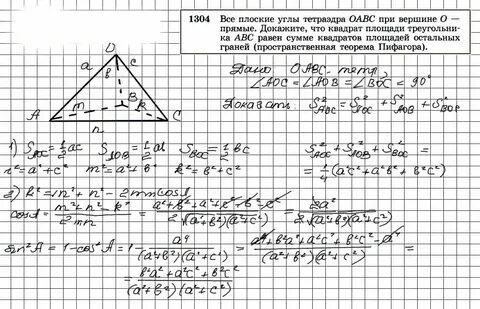 1304 Все плоские углы тетраэдра OABC при вершине O —
прямые. Докажите, что квадрат площади треугольни-
ка ABC равен сумме квадратов площадей остальных
граней (пространственная теорема Пифагора).
O
a b c
m B k
A C
n
Дано OABC - тетр,
∠AOC = ∠AOB = ∠BOC = 90°
Доказать: S²ABC = S²AOC + S²AOB + S²BOC
1) SAOC = 1/2 ac SAOB = 1/2 ab SBOC = 1/2 bc S²AOC + S²AOB + S²BOC =
n² = a² + c² m² = a² + b² k² = b² + c² = 1/4 (a²c² + a²b² + b²c²)
2) k² = m² + n² - 2mn cos A
cos A = (m² + n² - k²)/(2mn) = (a² + b² + a² + c² - b² - c²)/(2√(a² + b²)(a² + c²)) = 2a²/(2√(a² + b²)(a² + c²))
sin² A = 1 - cos² A = 1 - a⁴/((a² + b²)(a² + c²)) = (a⁴ + b²a² + a²c² + b²c² - a⁴)/((a² + b²)(a² + c²)) =
= (b²a² + a²c² + b²c²)/((a² + b²)(a² + c²))